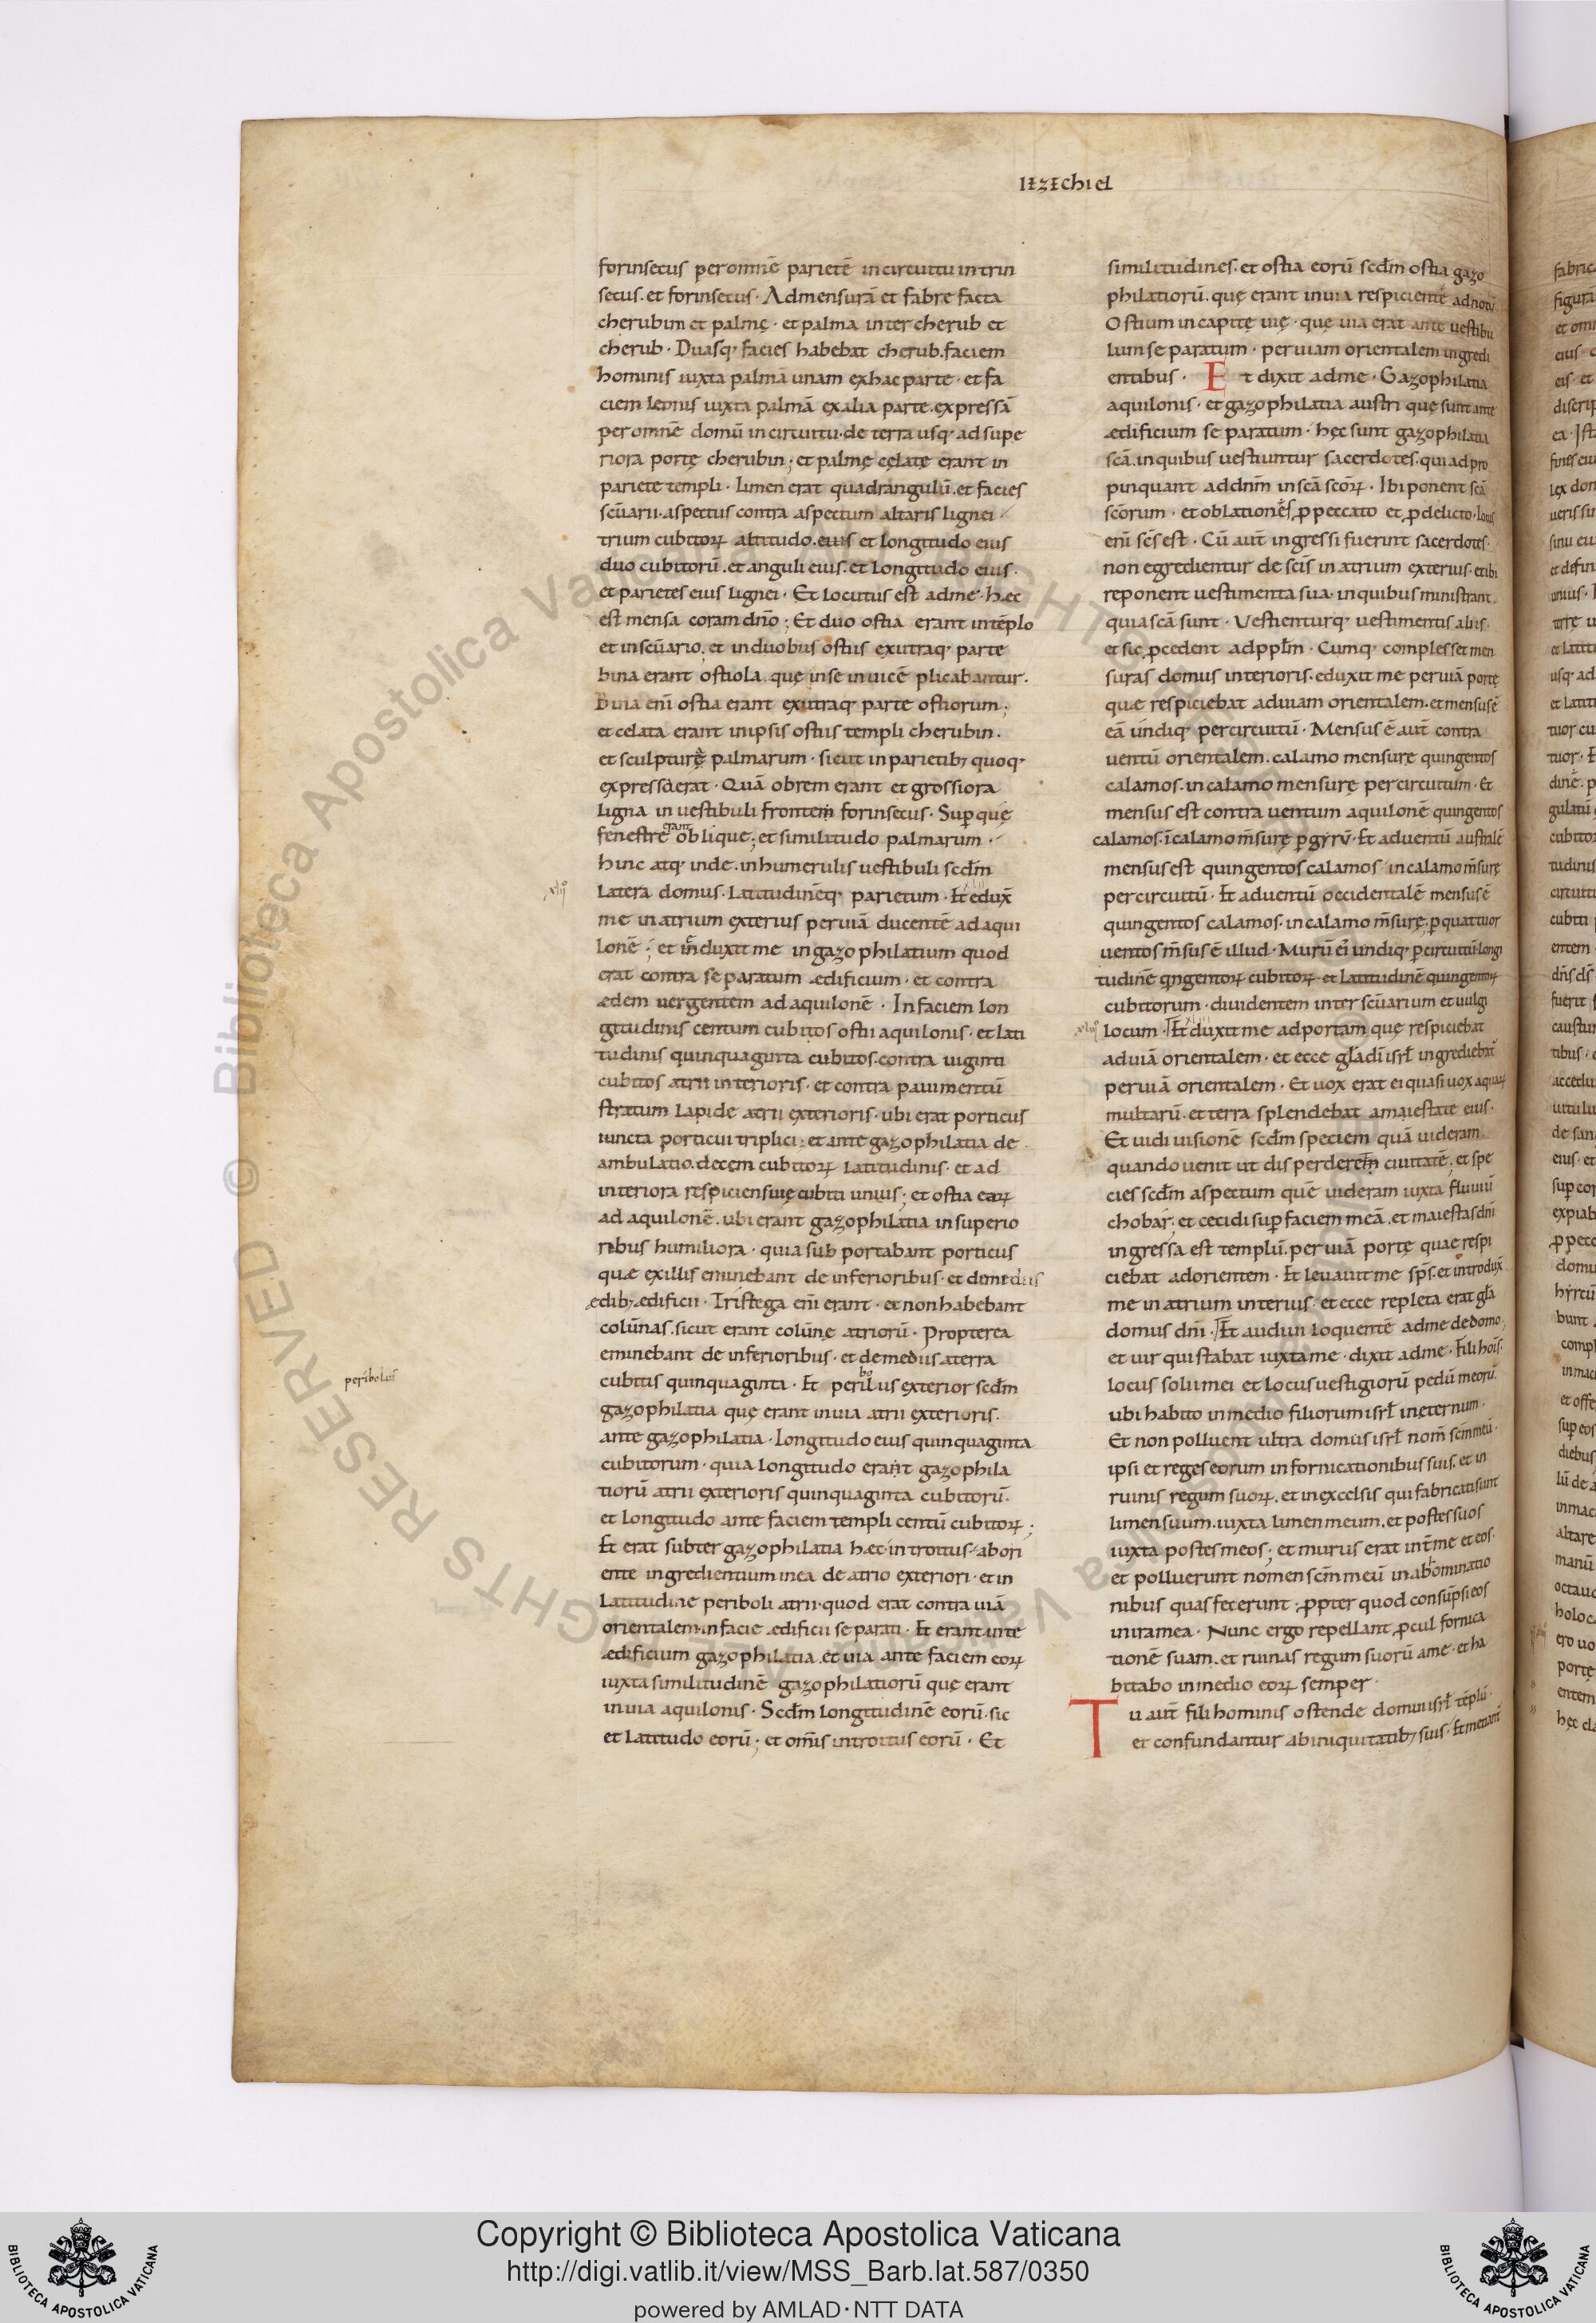 IEZECHIEL
forinsecus per omnē parietē in circuitu intrin
secus. et forinsecus. Ad mensurā et fabre facta
cherubim et palmę. et palma inter cherub et
cherub. Duasq; facies habebat cherub. faciem
hominis iuxta palmā unam ex hac parte. et fa
ciem leonis iuxta palmā ex alia parte. expressā
per omnē domū in circuitu. de terra usq; ad supe
riora portę cherubin; et palmę cęlatę erant in
pariete templi. limen erat quadrangulū. et facies
scūarii. aspectus contra aspectum altaris lignei.
trium cubitorꝝ altitudo. eius et longitudo eius
duo cubitorū. et anguli eius. et longitudo eius.
et parietes eius lignei. Et locutus est ad me. hæc
est mensa coram dn̄o; Et duo ostia erant in tēplo
et in scūario. et in duobus ostiis ex utraq; parte
bina erant ostiola. quę in se inuicē plicabantur.
Bina enī ostia erant ex utraq; parte ostiorum;
et celata erant in ipsis ostiis templi cherubin.
et sculpturę palmarum. sicut in parietib; quoq;
expressa erat. Quā obrem erant et grossiora
ligna in uestibuli frontem forinsecus. Sup̱ quę
fenestrę oblique; et similitudo palmarum.
hinc atq; inde. in humerulis uestibuli scđm
latera domus. Latitudinēq; parietum. Et edux̄
xlii
me in atrium exterius per uiā ducentē ad aqui
lonē; et induxit me in gazophilatium quod
erat contra separatum ædificium. et contra
ædem uergentem ad aquilonē. In faciem lon
gitudinis centum cubitos ostii aquilonis. et lati
tudinis quinquaginta cubitos. contra uiginti
cubitos atrii interioris. et contra pauimentū
stratum lapide atrii exterioris. ubi erat porticus
iuncta porticui triplici; et ante gazophilatia de
ambulatio. decem cubitorꝝ latitudinis. et ad
interiora respiciens uię cubiti unius; et ostia eorꝝ
ad aquilonē. ubi erant gazophilatia in superio
ribus humiliora. quia subportabant porticus
quæ ex illis eminebant de inferioribus. et de mediis
ędib; ædificii. Tristega enī erant. et non habebant
colūnas. sicut erant colūnę atriorū. Propterea
eminebant de inferioribus. et de mediis a terra
cubitis quinquaginta. Et peribolus exterior scđm
peribolus
gazophilatia quę erant in uia atrii exterioris.
ante gazophilatia. Longitudo eius quinquaginta
cubitorum. quia longitudo erant gazophila
tiorū atrii exterioris quinquaginta cubitorū.
et longitudo ante faciem templi centū cubitorꝝ;
Et erat subter gazophilatia hæc introitus. ab ori
ente ingredientium in ea de atrio exteriori. et in
latitudine periboli atrii. quod erat contra uiā
orientalem. in facie ædificii separati. Et erant ante
ædificium gazophilatia. et uia ante faciem eorꝝ
iuxta similitudinē gazophilatiorū quę erant
in uia aquilonis. Scđm longitudinē eorū. sic
et latitudo eorū; et om̄is introitus eorū. Et
similitudines. et ostia eorū scđm ostia gazo
philatiorū. quę erant in uia respicientē ad notū
Ostium in capitę uię. quę uia erat ante uestibu
lum separatum. per uiam orientalem ingredi
entibus. Et dixit ad me. Gazophilatia
aquilonis. et gazophilatia austri quę sunt ante
ædificium separatum. hęc sunt gazophilatia
scā. in quibus uestiuntur sacerdotes. qui adpro
pinquant ad dn̄m in scā scōrꝝ. Ibi ponent scā
scōrum. et oblationēs p̱ peccato et p̱ delicto. locus
enī scs̄ est. Cū aut̄ ingressi fuerint sacerdotes.
non egredientur de scīs in atrium exterius. et ibi
reponent uestimenta sua. in quibus ministrant.
quia scā sunt. Vestienturq; uestimentis aliis.
et sic p̱cedent ad pplm̄. Cumq; complesset men
suras domus interioris. eduxit me per uiā portę
quæ respiciebat ad uiam orientalem. et mensus ē
eā undiq; per circuitū. Mensus ē aut̄ contra
uentū orientalem. calamo mensurę quingentos
calamos. in calamo mensurę per circuitum. Et
mensus est contra uentum aquilonē quingentos
calamos. ī calamo m̄surę p̱ gyrū. Et ad uentū australē
mensus est quingentos calamos in calamo m̄surę
per circuitū. Et ad uentū occidentalē mensus ē
quingentos calamos. in calamo m̄surę. p̱ quattuor
uentos m̄sus ē illud. Murū ei undiq; p̱ circuitū longi
tudinē qingentorꝝ cubitorꝝ. et latitudinē quingentorꝝ
cubitorum. diuidentem inter scūarium et uulgi
xliii locum. Et duxit me ad portam quę respiciebat
ad uiā orientalem. et ecce glā dī isrł ingrediebat̄
per uiā orientalem. Et uox erat ei quasi uox aquarꝝ
multarū. et terra splendebat a maiestate eius.
Et uidi uisionē scđm speciem quā uideram
quando uenit ut disperderem ciuitatē. et spe
cies scđm aspectum quē uideram iuxta fluuiū
chobar. et cecidi sup̱ faciem meā. et maiestas dn̄i
ingressa est templū. per uiā portę quae respi
ciebat ad orientem. Et leuauit me sps̄. et introdux̄
me in atrium interius. et ecce repleta erat glā
domus dn̄i. Et audiui loquentē ad me de domo
et uir qui stabat iuxta me. dixit ad me. Fili hois̄
locus solii mei et locus uestigiorū pedū meorū.
ubi habito in medio filiorum isrł in eternum.
Et non polluent ultra domus isrł nom̄ scm̄ meū.
ipsi et reges eorum in fornicationibus suis. et in
ruinis regum suorꝝ. et in excelsis qui fabricati sunt
limen suum. iuxta limen meum. et postes suos
iuxta postes meos; et murus erat int̄ me et eos.
et polluerunt nomen scm̄ meū in abominatio
nibus quas fecerunt. p̱pter quod consūpsi eos
in ira mea. Nunc ergo repellant p̱cul fornica
tionē suam. et ruinas regum suorū a me. et ha
bitabo in medio eorꝝ semper.
Tu aut̄ fili hominis ostende domui isrł tēplū.
et confundantur ab iniquitatib; suis. Et metiant̄
© Biblioteca Apostolica Vaticana ALL RIGHTS RESERVED
Copyright © Biblioteca Apostolica Vaticana
http://digi.vatlib.it/view/MSS_Barb.lat.587/0350
powered by AMLAD·NTT DATA
BIBLIOTECA APOSTOLICA VATICANA
BIBLIOTECA APOSTOLICA VATICANA